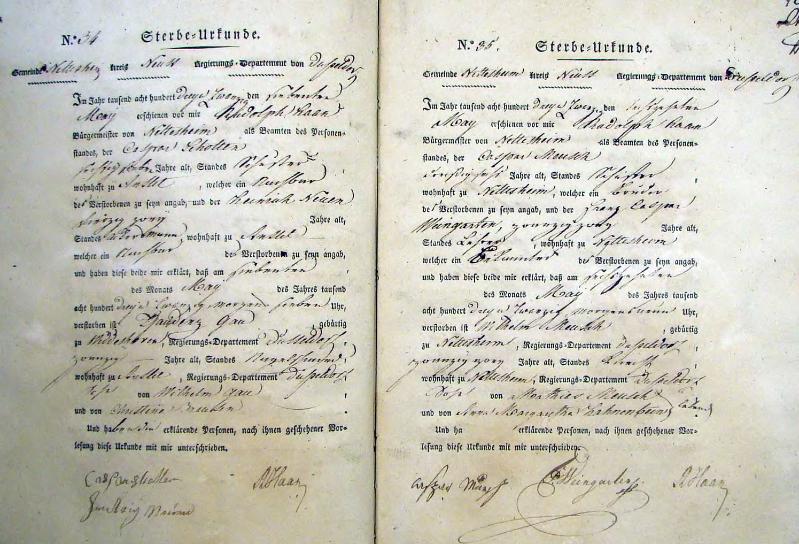 N.° 34 Sterbe-Urkunde.
Gemeinde Nettesheim Kreis Neuß Regierungs-Departement von Düsseldorf
Im Jahr tausend acht hundert dreyundzwanzig den siebenten
May erschienen vor mir Rudolph Haan
Bürgermeister von Nettesheim als Beamten des Personen-
standes, der Caspar Schotten
Jahre alt, Standes
wohnhaft zu Anstel, welcher ein Nachbar
des Verstorbenen zu seyn angab, und der Heinrich Neuen
vierzig zwey Jahre alt,
Standes Ackersmann, wohnhaft zu Anstel
welcher ein Nachbar des Verstorbenen zu seyn angab,
und haben diese beide mir erklärt, daß am siebenten
des Monats May des Jahres tausend
acht hundert dreyundzwanzig morgens sieben Uhr,
verstorben ist Gau, gebürtig
zu, Regierungs-Departement Düsseldorf
zwanzig Jahre alt, Standes
wohnhaft zu Anstel, Regierungs-Departement Düsseldorf
Sohn von Wilhelm Gau
und von Christina
Und haben die erklärende Personen, nach ihnen geschehener Vor-
lesung diese Urkunde mit mir unterschrieben.
Caspar Schotten
RHaan
N.° 35. Sterbe-Urkunde.
Gemeinde Nettesheim Kreis Neuß Regierungs-Departement von Düsseldorf
Im Jahr tausend acht hundert dreyundzwanzig den sechszehnten
May erschienen vor mir Rudolph Haan
Bürgermeister von Nettesheim als Beamten des Personen-
standes, der Caspar Meusch
Jahre alt, Standes
wohnhaft zu Nettesheim, welcher ein Bruder
des Verstorbenen zu seyn angab, und der Franz Caspar
Weingarten, zwanzig zwey Jahre alt,
Standes Lehrer, wohnhaft zu Nettesheim
welcher ein Bekannter des Verstorbenen zu seyn angab,
und haben diese beide mir erklärt, daß am sechszehnten
des Monats May des Jahres tausend
acht hundert dreyundzwanzig morgens neun Uhr,
verstorben ist Wilhelm Meusch, gebürtig
zu Nettesheim, Regierungs-Departement Düsseldorf
zwanzig zwey Jahre alt, Standes
wohnhaft zu Nettesheim, Regierungs-Departement Düsseldorf
Sohn von Mathias Meusch
und von Anna Margaretha Hahnenbein
Und ha erklärende Personen, nach ihnen geschehener Vor-
lesung diese Urkunde mit mir unterschrieben.
Caspar Müsch FCWeingarten RHaan